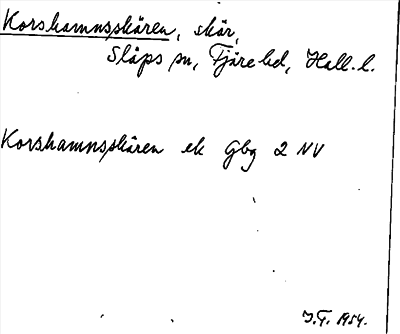 Korshamnsskären, skär,
Släps sn, Fjäre hd, Hall. l.
Korshamnsskären ek Gbg 2 NV
J.F. 1954.